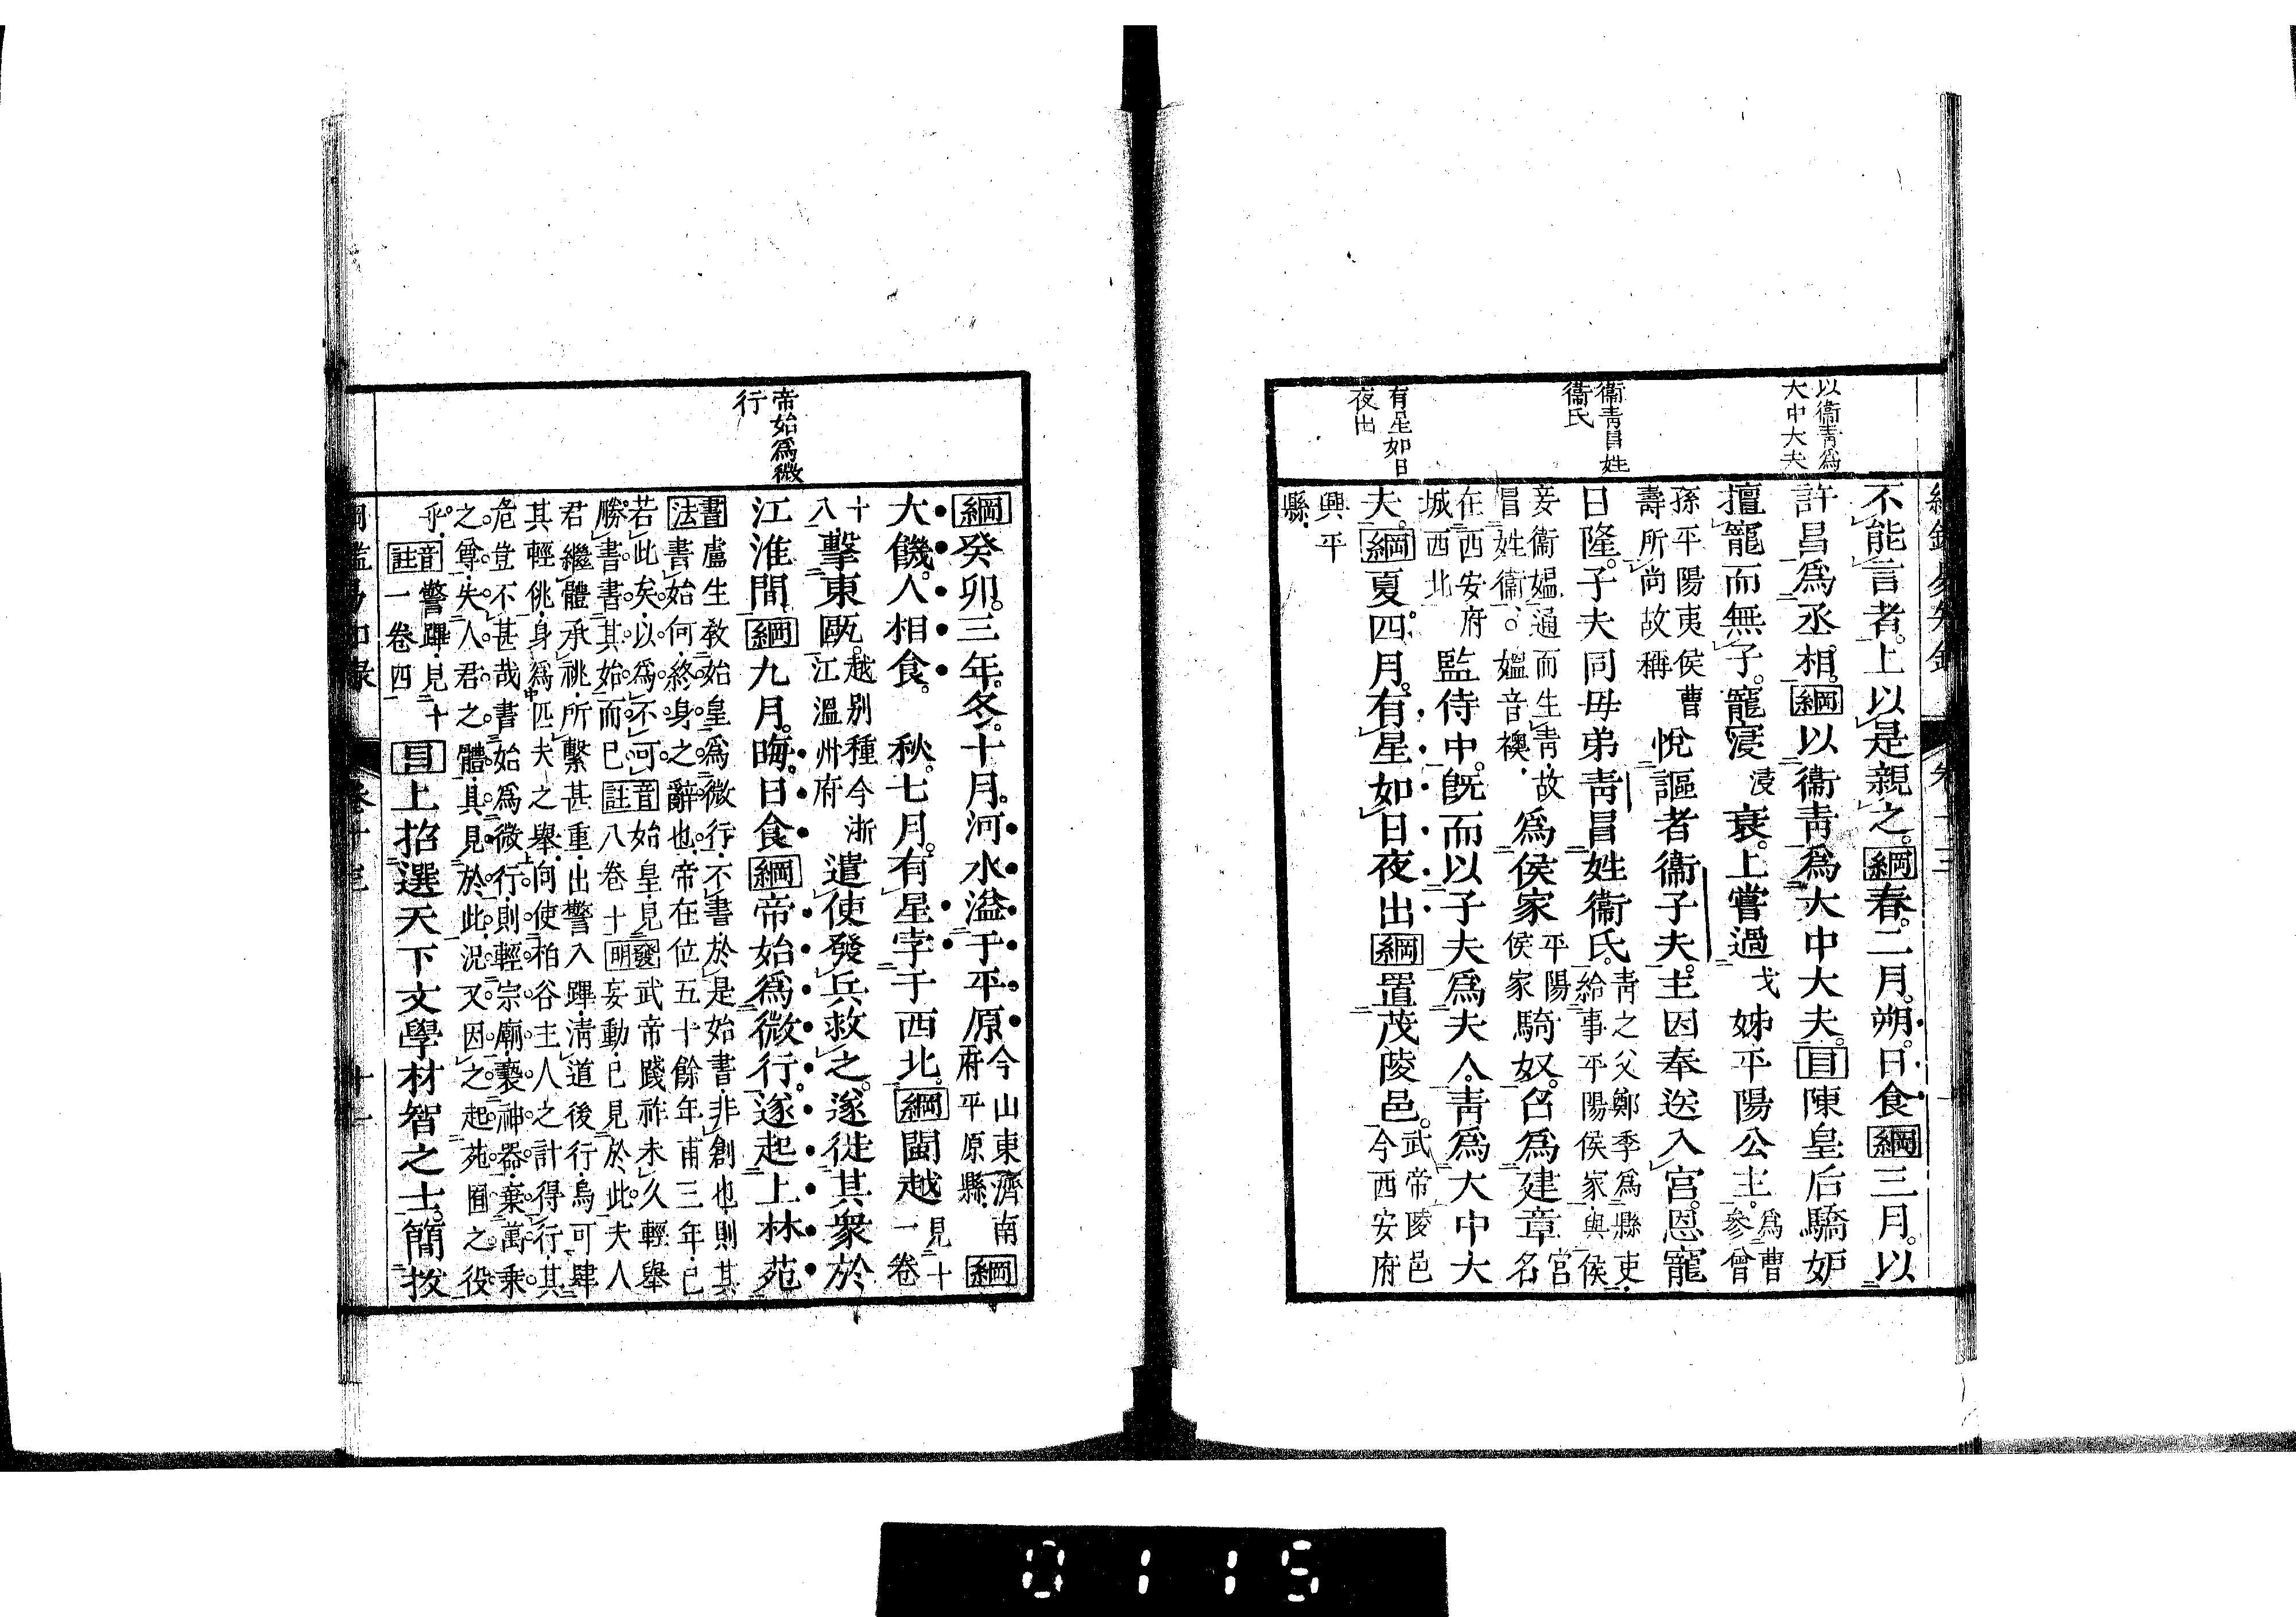 以衞青爲
大中大夫
衞青冒姓
衞氏
有星如日
夜出
不能言者。上以是親之。綱春。二月。朔。日食綱三月。以
許昌爲丞相。綱以衞青爲大中大夫。目陳皇后驕妒
擅寵而無子。寵寖浸衰。上嘗過戈姊平陽公主。爲曹
參曾
孫平陽夷侯曹
壽所尚故稱悅謳者衞子夫。主因奉送入宮。恩寵
日隆。子夫同母弟青冒姓衞氏。青之父鄭季爲縣吏
給事平陽侯家與侯
妾衞媼通而生青故
冒姓衞。媼音襖爲侯家平陽
侯家騎奴。召爲建章宮
名
在西安府
城西北監侍中。旣而以子夫爲夫人。青爲大中大
夫。綱夏四月。有星如日夜出綱置茂陵邑。武帝陵邑
今西安府
興平
縣
帝始爲微
行
綱癸卯。三年。冬。十月。河水溢于平原今山東濟南
府平原縣綱
大饑。人相食。秋。七月。有星孛于西北。綱閩越見十
一卷
十
八擊東甌。越别種今浙
江溫州府遣使發兵救之。遂徙其衆於
江淮間。綱九月。晦。日食綱帝始爲微行。遂起上林苑
書盧生敎始皇爲微行不書於是始書非創也則其
法書始何終身之辭也帝在位五十餘年甫三年已
若此矣以爲不可音始皇見發武帝踐祚未久輕舉
勝書書其始而已註八卷十明妄動已見於此夫人
君繼體承祧所繫甚重出警入蹕淸道後行烏可肆
其輕佻身爲匹夫之舉向使柏谷主人之計得行其
危豈不甚哉書始爲微行則輕宗廟褻神器棄萬乘
之尊失人君之體具見於此況又因之起苑囿之役
乎音警蹕見十
註一卷四目上招選天下文學材智之士。簡拔